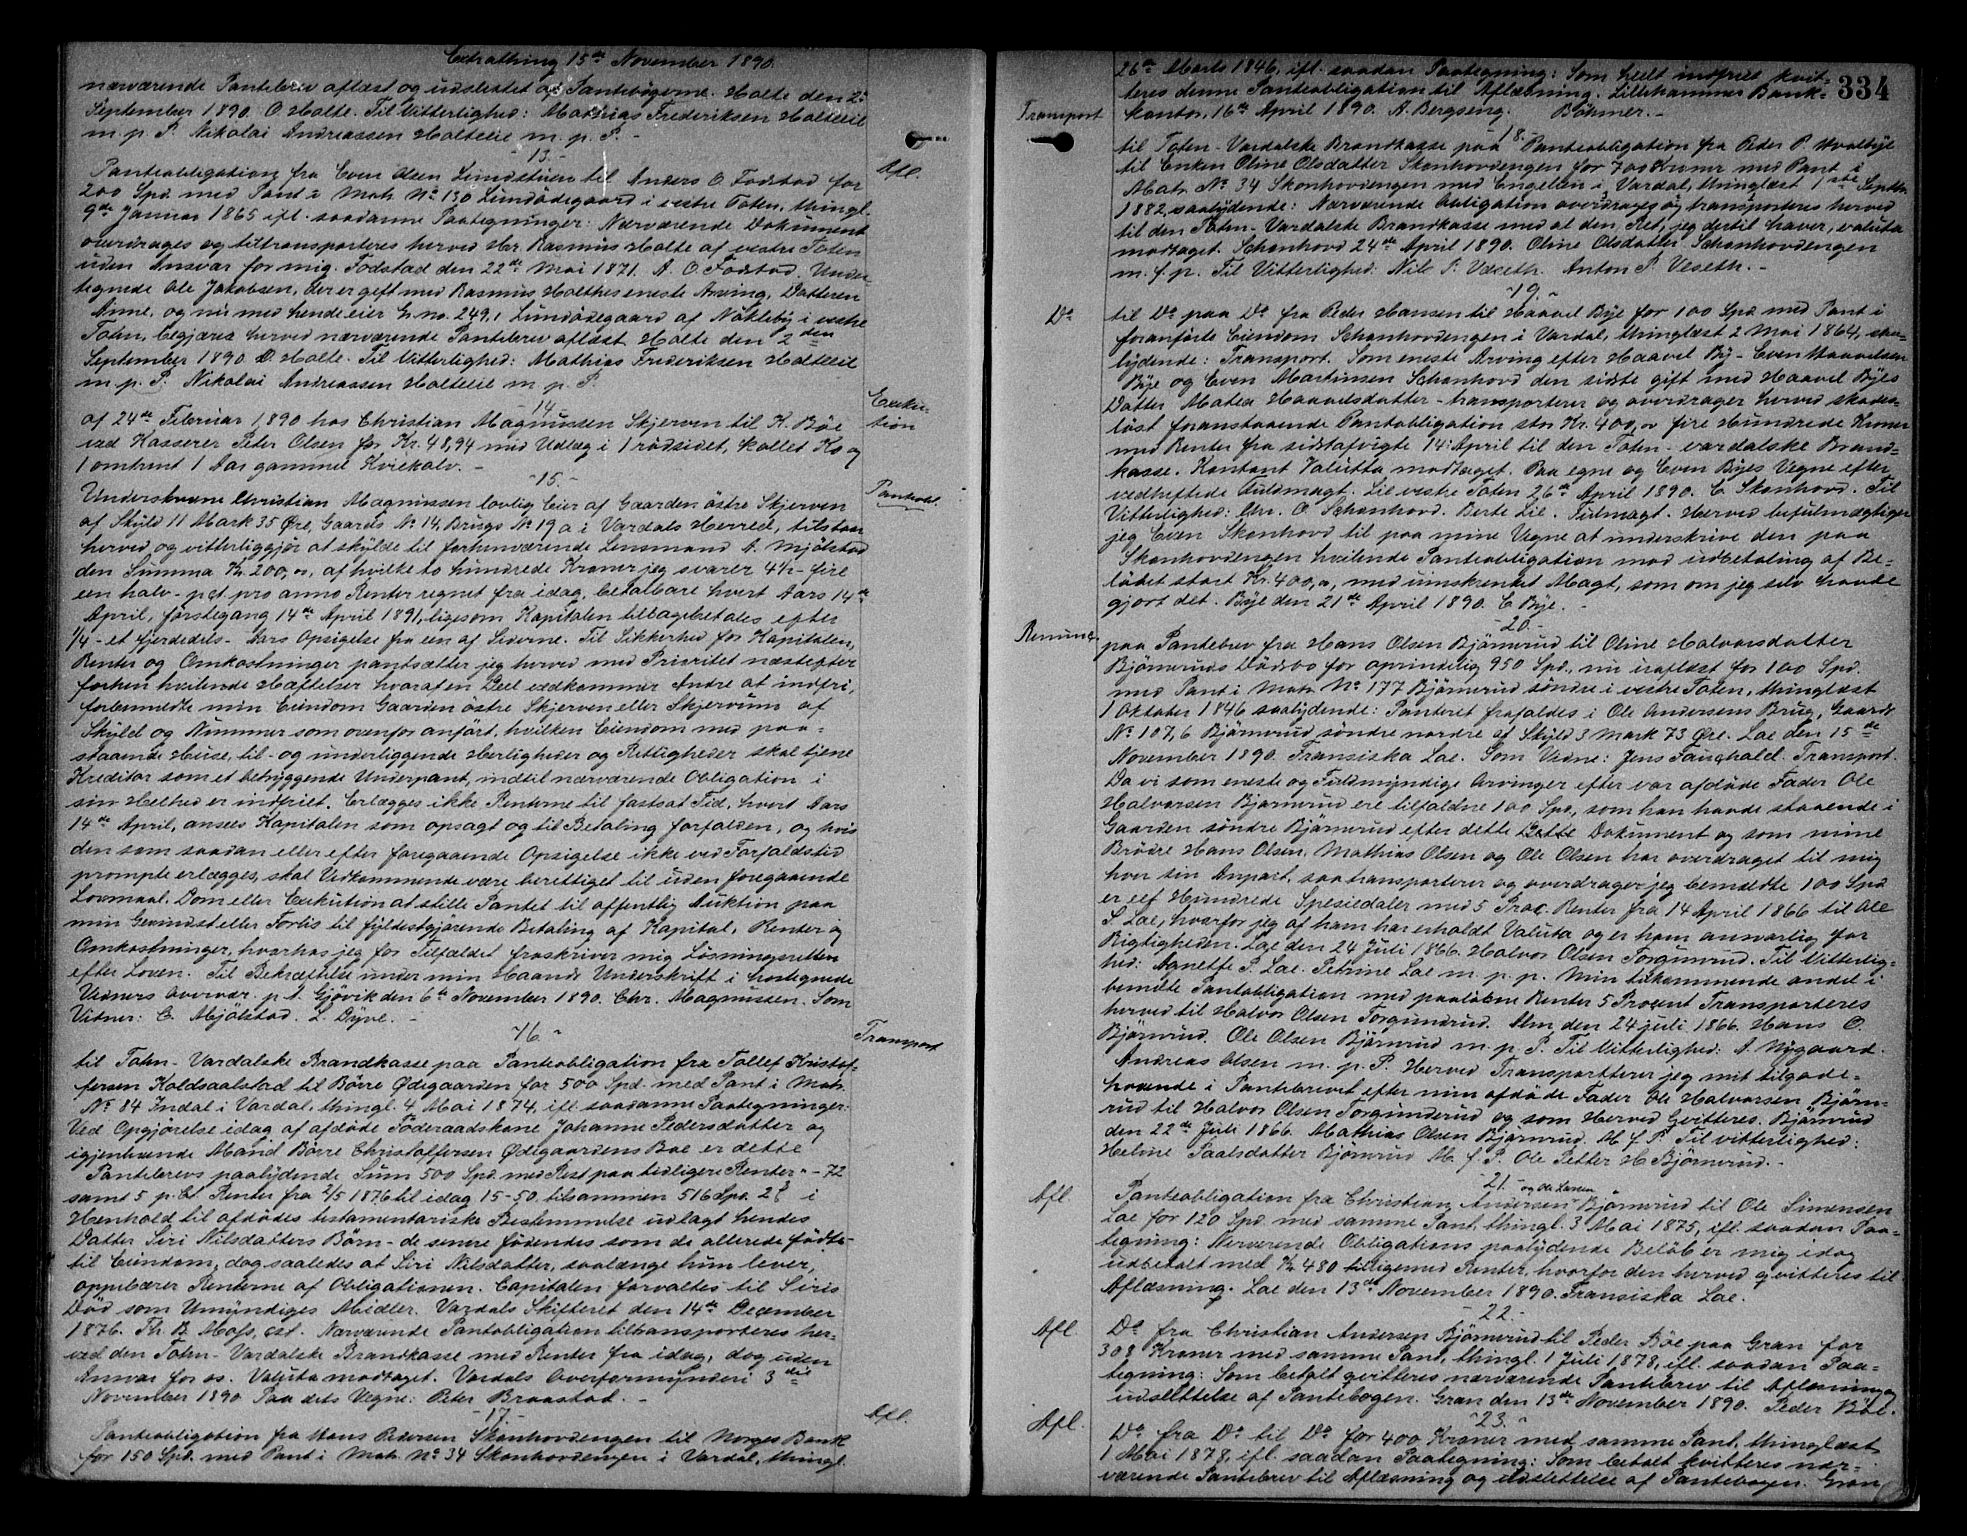 Extrathing 15de November 1890.
nærværende Pantebrev aflæst og udslettet af Pantebøgerne. Holte den 2de
September 1890. O. Holte. Til Vitterlighed: Mathias Frederiksen Holteeie
m. p. P. Nikolai Andreassen Holteeie m. p. P. -
- 13. -
Afl.
Panteobligation fra Even Olsen Lundstuen til Anders O. Fodstad for
200 Spd. med Pant i Matr. No 130 Lundödegaard i vestre Toten, thingl.
9de Januar 1865 ifl. saadanne Paategninger: Nærværende Dokument
overdrages og tiltransporteres herved Hr. Rasmus Holte af vestre Toten
uden Ansvar for mig. Fodstad den 22de Mai 1871. A. O. Fodstad. Under-
tegnede Ole Jakobsen, der er gift med Rasmus Holthes eneste Arving, Datteren
Anne, og nu med hende eier G. no. 249,1 Lundödegaard af Nökleby i vestre
Toten, begjærer herved nærværende Pantebrev aflæst. Holte den 2den
September 1890. O. Holte. Til Vitterlighed: Mathias Frederiksen Holteeie
m. p. P. Nikolai Andreassen Holteeie m. p. P.
- 14. -
Exeku-
tion
af 24de Februar 1890 hos Christian Magnussen Skjerven til K. Böe
ved Kasserer Peter Olsen for Kr. 48,94 med Udlæg i 1 rødsidet, kollet Ko og
1 omtrent 1 Aar gammel Kviekalv. -
- 15. -
Panteobl.
Underskrevne Christian Magnussen lovlig Eier af Gaarden östre Skjerven
af Skyld 11 Mark 35 Öre, Gaards No 14, Brugs No 19 a i Vardals Herred, tilstaar
herved og vitterliggjør at skylde til forhenværende Lensmand A. Mjölstad
den Summa Kr. 200,00, af hvilke to hundrede Kroner jeg svarer 4½ - fire
een halv - pct. pro anno Renter regnet fra idag, betalbare hvert Aars 14de
April, förstegang 14de April 1891, ligesom Kapitalen tilbagebetales efter
1/4 - et fjerdedels - Aars Opsigelse fra een af Siderne. Til Sikkerhed for Kapitalen,
Renter og Omkostninger pantsætter jeg herved med Prioritet næstefter
forhen heilende Hæftelser hvoraf en Deel vedkommer Andre at indfri,
forbemeldte min Eiendom Gaarden östre Skjerven eller Skjervum af
Skyld og Nummer som ovenfor anført, hvilken Eiendom med paa-
staaende Huse, til- og underliggende Herligheder og Rettigheder skal tjene
Kreditor som et betryggende Underpant, indtil nærværende Obligation i
sin Helhed er indfriet. Erlægges ikke Renterne til fastsat Tid, hvert Aars
14de April, ansees Kapitalen som opsagt og til Betaling forfalden, og hvis
den som saadan eller efter foregaaende Opsigelse ikke ved Forfaldstid
prompte erlægges, skal Vedkommende være berettiget til uden foregaaende
Lovmaal, Dom eller Exekution at stille Pantet til offentlig Auktion paa
min Gevindst eller Forlis til fyldestgjørende Betaling af Kapital, Renter og
Omkostninger, hvorhos jeg for Tilfældet fraskriver mig Lösningsretten
efter Loven. Til Bekræftelse under min Haands Underskrift i hostegnede
Vidners Overvær. p. t. Gjövik den 6te November 1890. Chr. Magnussen. Som
Vidner: C. Mjölstad. L. Dyve. -
- 16. -
Transport
til Toten-Vardalske Brandkasse paa Panteobligation fra Tollef Kristof-
fersen Koldsaalstad til Börre Ødegaarden for 500 Spd. med Pant i Matr.
No 84 Indal i Vardal, thingl. 4 Mai 1874, ifl. saadanne Paategninger:
Ved Opgjørelse idag af afdøde Föderaadskone Johanne Pedersdatter og
igjenlevende Mand Börre Christoffersen Ødegaardens Boe er dette
Pantebrevs paalydende Sum 500 Spd. med Rest paa tidligere Renter - 72
samt 5 p. Ct. Renter fra 2/5 1876 til idag 15-50. tilsammen 516 Spd. 2 i
Henhold til afdødes testamentariske Bestemmelse udlagt hendes
Datter Siri Nilsdatters Börn - de senere fødendes som de allerede fødte -
til Eiendom, dog saaledes at Siri Nilsdatter, saalænge hun lever,
oppebærer Renterne af Obligationen. Capitalen forvaltes til Siris
Död som Umyndiges Midler. Vardals Skifteret den 14de December
1876. Th. B. Moss, cst. Nærværende Panteobligation tiltransporteres her-
ved den Toten-Vardalske Brandkasse med Renter fra idag, dog uden
Ansvar for os. Valuta modtaget. Vardals Overformynderi 3die
November 1890. Paa dets Vegne: Peter Braastad. -
- 17. -
Afl.
Panteobligation fra Hans Pedersen Skonhovdengen til Norges Bank
for 150 Spd. med Pant i Matr. No 34 Skonhovdengen i Vardal, thingl.
334
26de Marts 1846, ifl. saadan Paategning: Som heelt indfriet kvit-
teres denne Panteobligation til Aflæsning. Lillehammer Bank-
kontor, 16de April 1890. A. Bergseng. Böhmer. -
- 18. -
Transport
til Toten-Vardalske Brandkasse paa Panteobligation fra Peder P. Hvalbye
til Enken Oline Olsdatter Skonhovdengen for 700 Kroner med Pant i
Matr. No 34 Skonhovdengen med Engelien i Vardal, thinglæst 1ste Septbr.
1882, saalydende: Nærværende Obligation overdrages og transporteres herved
til den Toten-Vardalske Brandkasse med al den Ret, jeg dertil haver, valuta
modtaget. Schonhovd 24de April 1890. Oline Olsdatter Schonhovdengen
m. f. p. Til Vitterlighed: Nils P. Veseth. Anton P. Veseth. -
- 19. -
Do
til Do paa Do fra Peder Hansen til Haavel Bye for 100 Spd. med Pant i
foranførte Eiendom Schonhovdengen i Vardal, thinglæst 2 Mai 1864, saa-
lydende: Transport. Som eneste Arving efter Haavel By - Even Haavelsen
Bye og Even Martinsen Schonhovd den sidste gift med Haavel Byes
Datter Mathea Haavelsdatter - transporterer og overdrager herved skades-
löst foranstaaende Pantobligation stor Kr. 400,00 fire Hundrede Kroner
med Renter fra sidstafvigte 14 April til den Toten-vardalske Brand-
kasse. Kontant Valutta modtaget. Paa egne og Even Byes Vegne efter
vedheftede Fuldmagt. Lie vestre Toten 26de April 1890. E. Skonhovd. Til
Vitterlighed: Chr. O. Schonhovd. Berte Lie. Fulmagt. Herved befulmægtiger
jeg Even Skonhovd til paa mine Vegne at underskrive den paa
Skonhovdengen heilende Panteobligation mod udbetaling af Be-
löbet stort Kr. 400,00, med uinskrenket Magt, som om jeg selv havde
gjort det. Bye den 21de April 1890. E. Bye. -
- 20. -
Renunc.
paa Pantebrev fra Hans Olsen Bjömerud til Oline Halvorsdatter
Bjömeruds Dödsbo for oprindelig 950 Spd., nu uaflæst for 100 Spd.
med Pant i Matr. No 177 Bjömerud söndre i vestre Toten, thinglæst
1 Oktober 1846 saalydende: Panteret frafaldes i Ole Andersens Brug, Gaards
No 107,6 Bjömerud söndre nordre af Skyld 3 Mark 73 Öre. Lae den 15de
November 1890. Fransiska Lae. Som Vidne: Jens Fauchald. Transport.
Da vi som eneste og Fuldmyndige Arvinger efter vor afdöde Fader Ole
Halvorsen Björnerud ere tilfaldne 100 Spd., som han havde staaende i
Gaarden söndre Bjömerud efter dette Dokument og som mine
Brödre Hans Olsen, Mathias Olsen og Ole Olsen har overdraget til mig
hver sin Anpart, saa transporterer og overdrager jeg bemeldte 100 Spd.
er eet Hundrede Spesiedaler med 5 Proc. Renter fra 14 April 1866 til Ole
S. Lae, hvorfor jeg af ham har erholdt Valuta og er ham ansvarlig for
Rigtigheden. Lae den 24 Juli 1866. Halvor Olsen Torgunrud. Til Vitterlig-
hed: Agnethe P. Lae. Petrine Lae m. p. p. Min tilkommende andel i
bemelte Pantobligation med paaløbne Renter 5 Procent Transporteres
herved til Halvor Olsen Torgunrud. Alm den 24 juli 1866. Hans O.
Bjørnrud. Ole Olsen Bjørnrud m. p. P. Til Vitterlighed: A. Nygaard.
Andreas Olsen m. p. P. Herved Transportterer jeg mit tilgode-
havende i Pantebrevet efter min afdøde Fader Ole Halvorsen Bjørn-
rud til Halvor Olsen Torgunderud og som Herved Qvitteres. Bjørnrud
den 22de Juli 1866. Mathias Olsen Bjørnrud. M. f. P. Til vitterlighed:
Heline Paalsdatter Bjørnrud M. f. P. Ole Petter H. Bjørnerud. -
- 21. -
Afl.
og Ole Larsen
Panteobligation fra Christian Andersen Bjömerud til Ole Simensen
Lae for 120 Spd. med samme Pant, thingl. 3 Mai 1875, ifl. saadan Paa-
tegning: Nerværende Obligations paalydende Belöb er mig idag
udbetalt med Kr. 480 tilligemed Renter, hvorfor den herved qvitteres til
Aflæsning. Lae den 13de November 1890. Fransiska Lae.
- 22. -
Afl.
Do fra Christian Andersen Bjömerud til Peder Böe paa Gran for
308 Kroner med samme Pant, thingl. 1 Juli 1878, ifl. saadan Paa-
tegning: Som betalt qvitteres nærværende Pantebrev til Aflæsning og
udslettelse af Pantebogen. Gran den 13de November 1890. Peder Böe.
- 23. -
Afl.
Do fra Do til Do for 400 Kroner med samme Pant, thinglæst
1 Mai 1878, ifl. saadan Paategning: Som betalt kvitteres nær-
værende Pantebrev til Aflæsning og udslettelse af Pantebogen. Gran